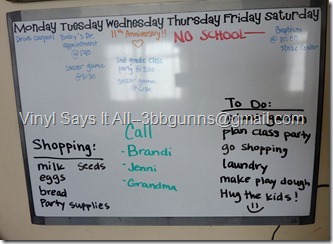 Monday Tuesday Wednesday Thursday Friday Saturday
Drive Carpool
Baby's Dr.
appointment
@
soccer game
@ 5:30
11th Anniversary!!
2nd grade class
party @ 2:00
soccer game
NO SCHOOL
Baptism
@
Stake Center
Vinyl Says It All--3bbgunns@gmail.com
To Do:
plan class party
go shopping
laundry
make play dough
Hug the kids!
Call
- Brandi
- Jenni
- Grandma
Shopping:
milk seeds
eggs
bread
Party supplies